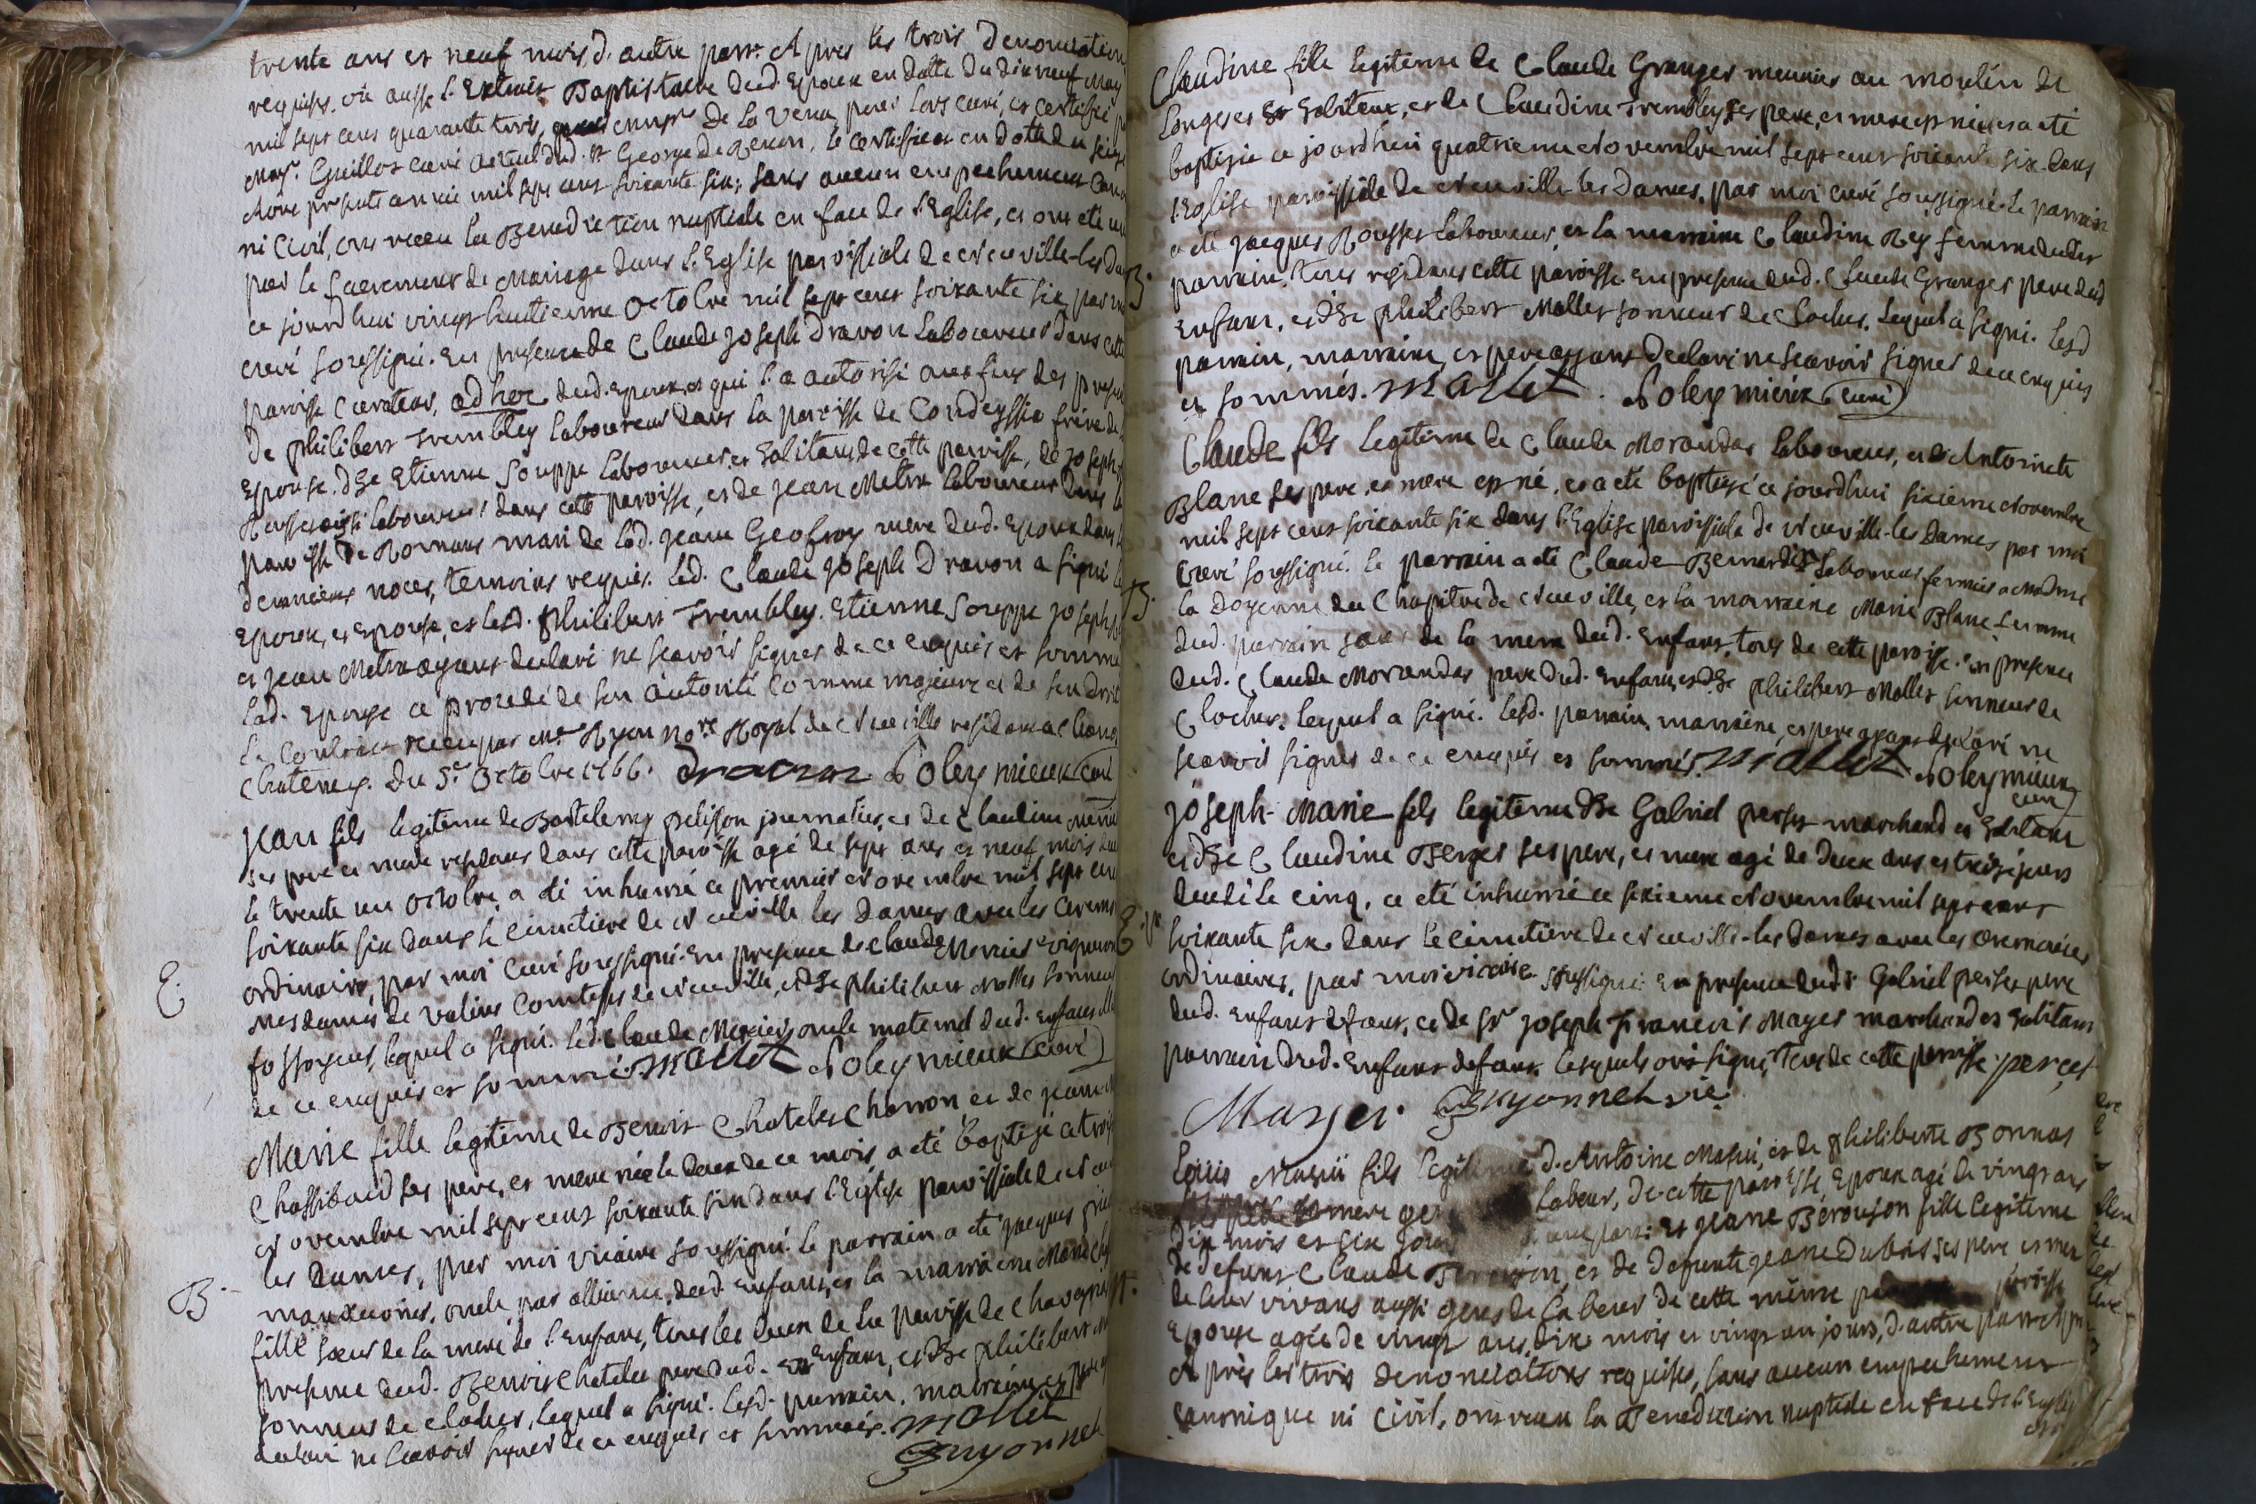 trente ans et neuf mois d'autre part. Apres les trois denonciations
requises. vu aussi l'Extrait Baptistaire dud. Epoux en datte du dix neuf May
mil sept cens quarante trois, de la Vena pour lors curé, et certifié
Mayr. Guillot curé actuel dud. St George de Renon, le certificat en datte du seize
présente année mil sept cent soixante six; sans aucun empechement Cano
ni Civil, ont receu la Benediction nuptiale en face de l'Eglise, et ont eté unis
par le Sacrement de Mariage dans l'Eglise paroissiale de Neuville-les Dames
ce jourdhui vingt huitieme Octobre mil sept cent soixante six, par moi
curé soussigné. En presence de Claude Joseph Dravon Laboureur dans cette
paroisse Curateur, ad hoc dud. epoux, et qui l'a autorisé aux fins des presentes
de Philibert Trembley laboureur dans la paroisse de Condeyssia frère de l'
Epouse. d'he Etienne Souppe laboureur et habitant de cette paroisse, de Joseph
aussi laboureur dans cette paroisse, et de Jean Metra laboureur dans la
paroisse de Romans mari de lad. Jeane Geofroy mere dud. Epoux dans les
dernieres noces, temoins requis. led. Claude Joseph Dravon a signé les
Epoux, et Epouse, et lesd. Philibert Trembley. Etienne Souppe Joseph
et Jean Metra ayans declaré ne scavoir signer de ce enquis et sommé
lad. Epouse a procedé de son autorité comme majeure et de son droit
le Contract receu par Me Ryon nore Royal de Neuville residant a Chano
Chateney. du 5e Octobre 1766. Dravon Soleymieux curé
Jean fils legitime de Bartelemy Pelisson journalier, et de Claudine Mercier
ses pere et mere residans dans cette paroisse agé de sept ans et neuf mois
le trente un octobre a eté inhumé ce premier Novembre mil sept cens
soixante six dans le cimetiere de Neuville les Dames avec les ceremonies
ordinaires, par moi Curé soussigné. En presence de Claude Mercier vigneron
Mesdames de Valins Comtesses de Neuville, et d'he Philibert Mollet sonneur
fossoyeur, lequel a signé. led. Claude Mercier, oncle maternel dud. enfant
de ce enquis et sommé. Mollet Soleymieux (curé)
E.
Marie fille legitime de Benoit Chatelet Charron et de Jeanne
Chassibaud ses pere, et mere née le deux de ce mois a eté baptisé ce trois
Novembre mil sept cent soixante six dans l'Eglise paroissiale de Neuville
les Dames, par moi vicaire soussigné. le parrain a eté Jacques
oncle par alliance, dud. Enfant, et la marraine Marie
B.
fille soeur de la mere de l'enfant, tous les deux de la paroisse de Chaveyriat
presence dud. Benoit Chatelet pere dud. Enfant, et d'he Philibert
sonneur de clocher, lequel a signé. lesd. parrain, marraine, et pere
declaré ne scavoir signer de ce enquis et sommés. Mollet
Guyonnet
Claudine fille legitime de Claude Granger meunier au moulin de
Longeres et habitant, et de Claudine Trembley ses pere, et mere est née, et a eté
baptisée ce jourdhui quatrieme Novembre mil sept cent soixante six dans
l'Eglise paroissiale de Neuville les Dames, par moi curé soussigné. le parrain
a eté Jacques Rousset laboureur, et la marraine Claudine Rey femme dudit
parrain. tous residans cette paroisse. En presence dud. Claude Granger pere dud.
B.
Enfant, et d'he Philibert Mollet sonneur de Clocher. lequel a signé. lesd.
parrain, marraine, et pere ayant declaré ne scavoir signer de ce enquis
et sommés. Mollet. Soleymieux (curé)
Claude fils legitime de Claude Morandas laboureur, et d'Antoinete
Blanc ses pere, et mere est né, et a eté baptisé ce jourdhui sixieme Novembre
mil sept cent soixante six dans l'Eglise paroissiale de Neuville-les Dames par moi
Curé soussigné. le parrain a eté Claude Bernardin laboureur fermier a Madme
la Doyenne du Chapitre de Neuville, et la marraine Marie Blanc femme
B.
dud. parrain soeur de la mere dud. Enfant. tous de cette paroisse. En presence
dud. Claude Morandas pere dud. enfant, et d'he Philibert Mollet sonneur de
Clocher. lequel a signé. lesd. parrain, marraine, et pere ayans declaré ne
scavoir signer de ce enquis et sommés. Mollet Soleymieux
curé
Joseph-Marie fils legitime d'he Gabriel perset marchand et habitant
et d'he Claudine Berger ses pere, et mere agé de deux ans et treize jours
decédé le cinq, a eté inhumé ce sixieme Novembre mil sept cent
E.
soixante six dans le Cimetiere de Neuville-les Dames avec les ceremonies
ordinaires, par moi vicaire soussigné: En presence dud. Gabriel perset pere
dud. Enfant defunt, et de Sr Joseph François Mayer marchand et habitant
parrain dud. Enfant defunt. lesquels ont signé, tous de cette paroisse. perçet
Mayer Guyonnet vic
Louis Masui fils legitime d'Antoine Masui, et de Philiberte Bonnas
ses pere et mere labeur, de cette paroisse, Epoux agé de vingt ans
dix mois et six jours d'une part: et Jeane Beroujon fille legitime
de defunt Claude Beroujon, et de defunte Jeane Dubois ses pere et mere
M.
de leur vivans aussi gens de labeur de cette même paroisse
Epouse agée de vingt ans, dix mois et vingt un jours, d'autre part
Après les trois denonciations requises, sans aucun empechement
canonique ni civil, ont receu la Benediction nuptiale en face de l'Eglise